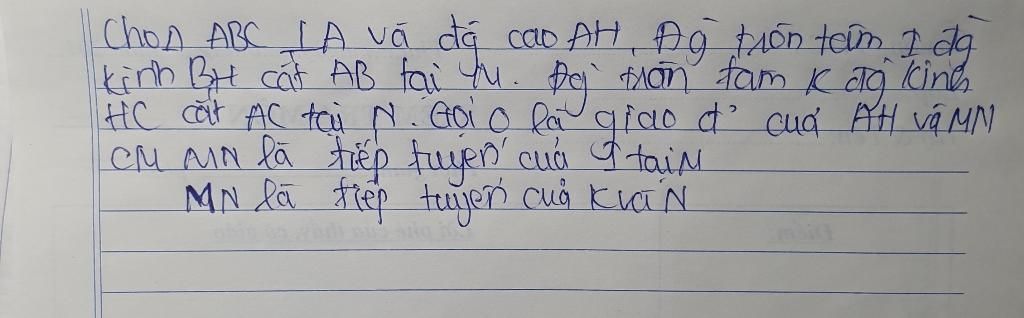 Cho Δ ABC ⊥ A và đg cao AH. Đg tròn tâm I đg
kính BH cắt AB tại M. Đg tròn tâm K đg kính
HC cắt AC tại N. Gọi O là giao đ' của AH và MN
CM MN là tiếp tuyến của I tại M
MN là tiếp tuyến của K và N